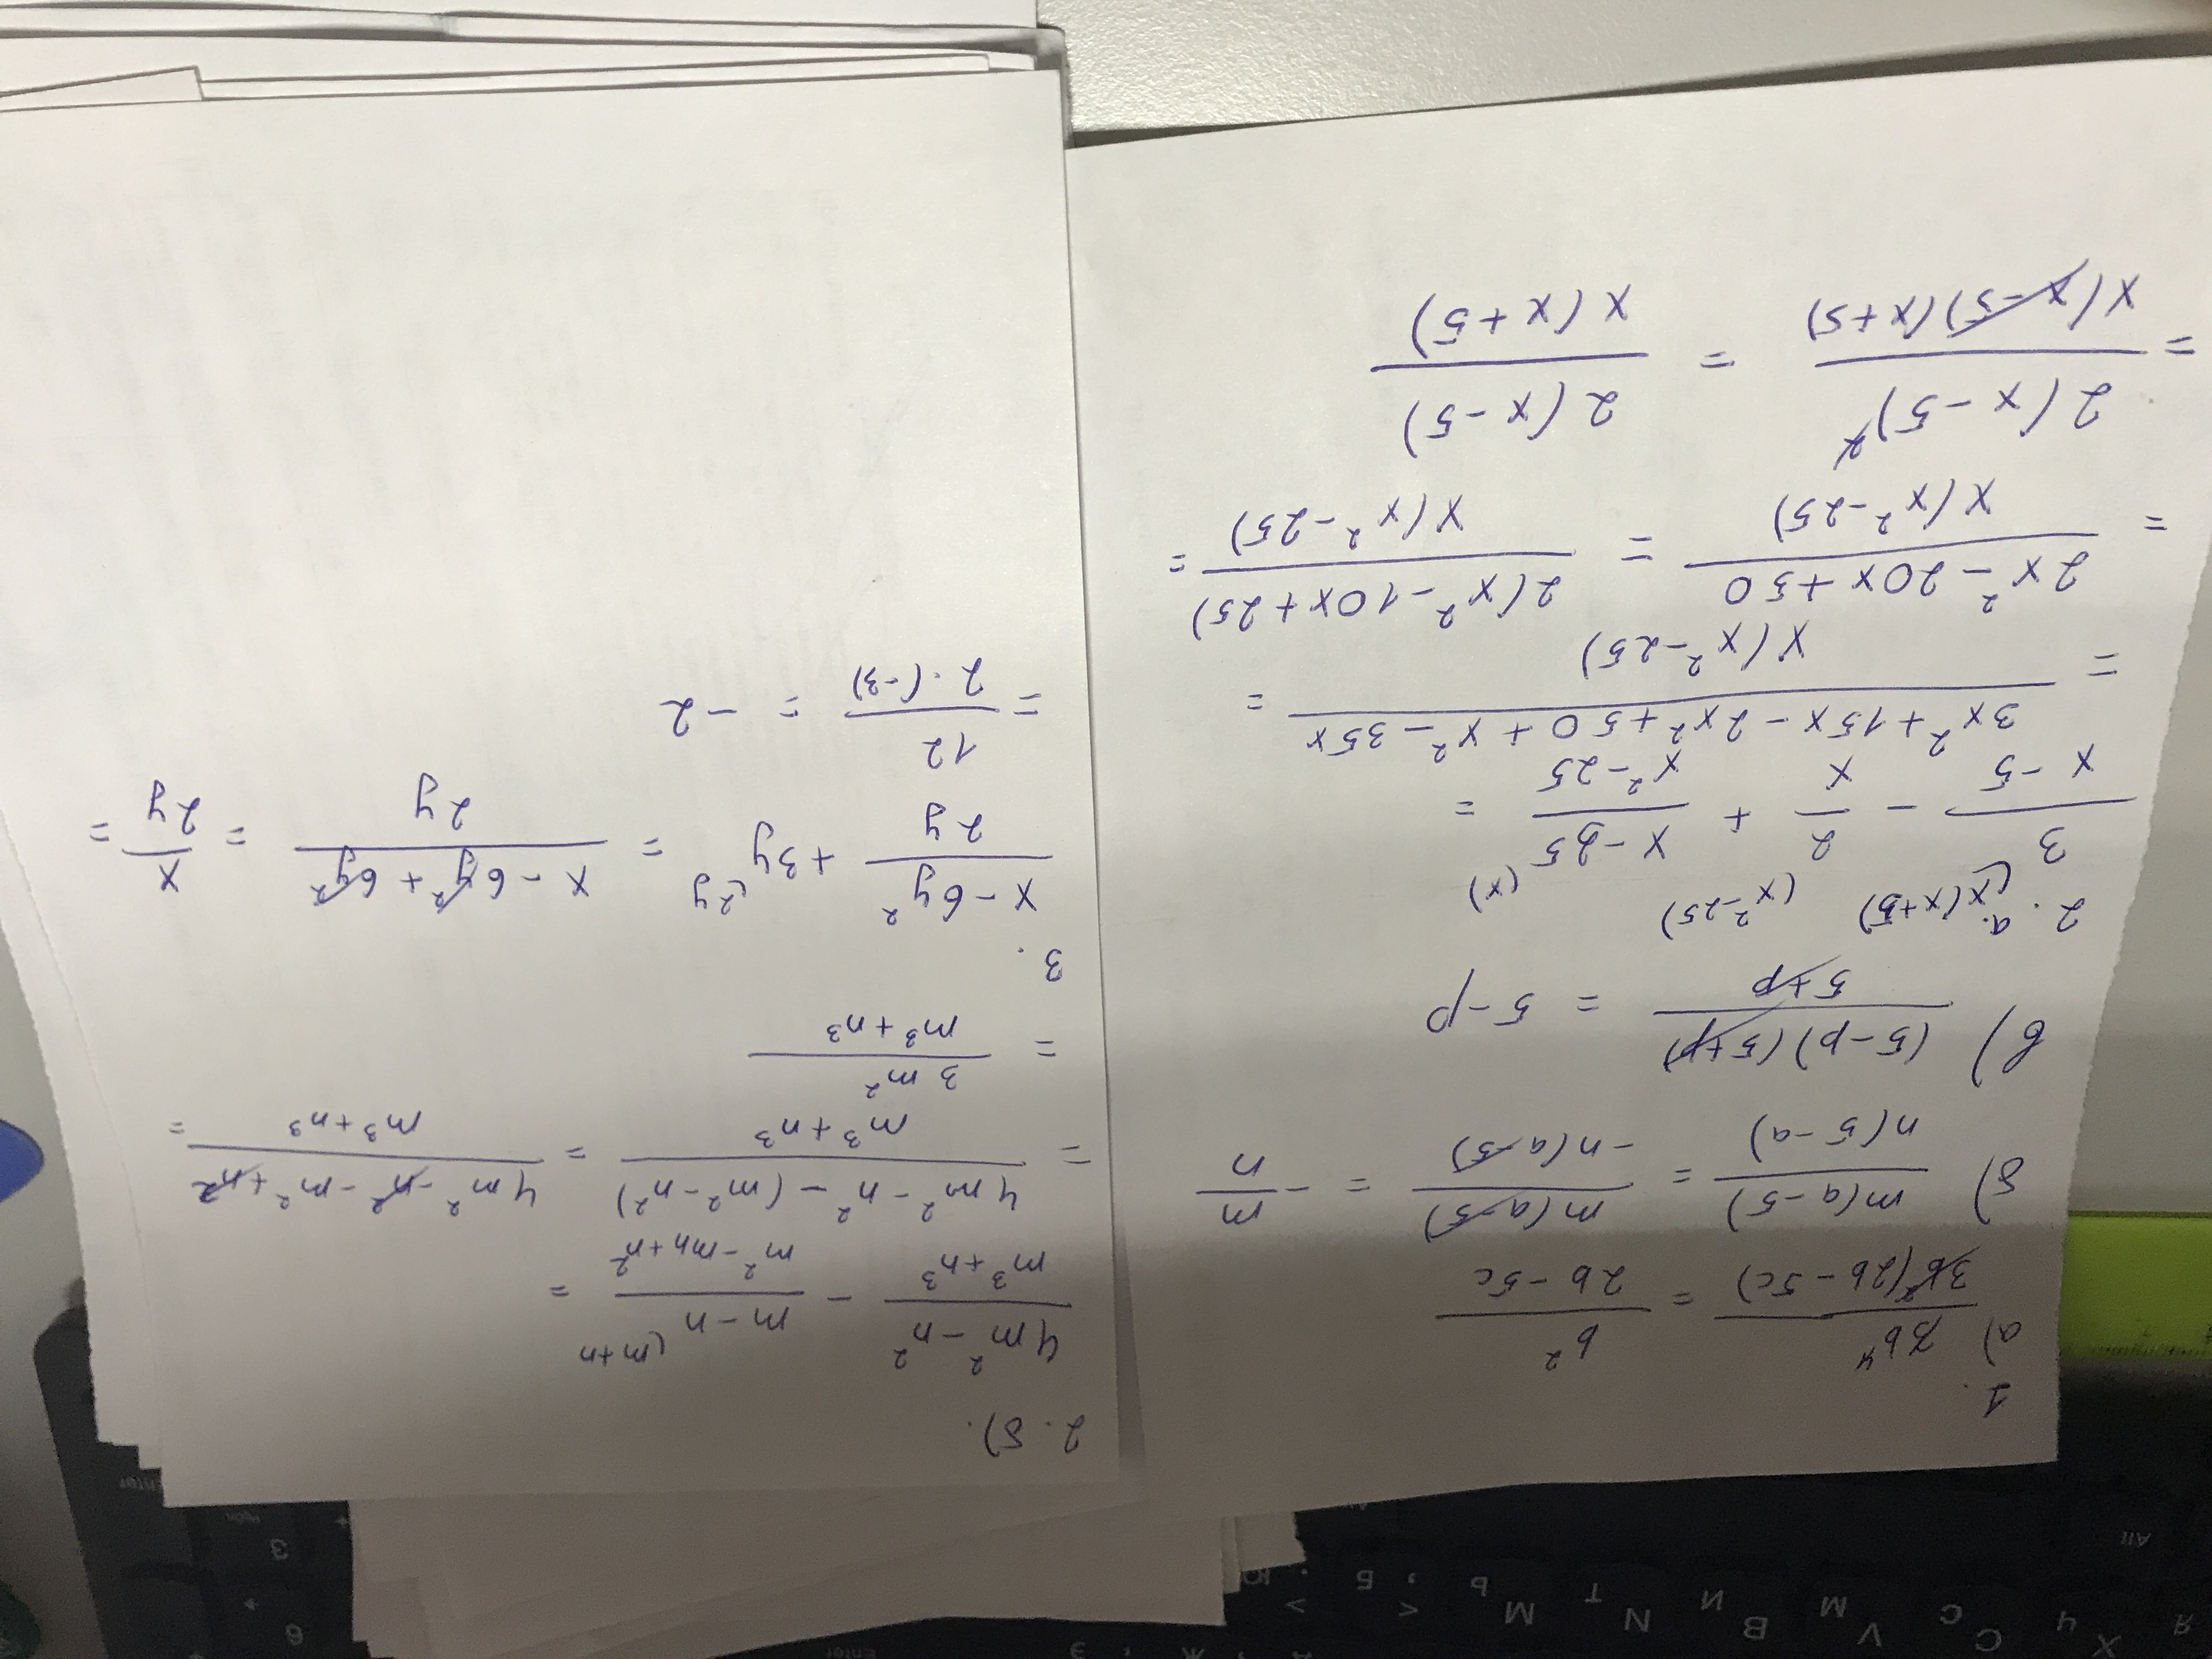 1.
а) 3b⁴ / 3b²(2b - 5c) = b² / 2b - 5c
б) m(a-5) / n(5-a) = m(a-5) / -n(a-5) = - m / n
в) (5-p)(5+p) / 5+p = 5-p
2. а. (x(x+5) (x²-25) (x)
3 / x-5 - 2 / x + x-35 / x²-25 =
= 3x² + 15x - 2x² + 50 + x² - 35x / x(x²-25) =
= 2x² - 20x + 50 / x(x²-25) = 2(x² - 10x + 25) / x(x²-25) =
= 2(x-5)² / x(x-5)(x+5) = 2(x-5) / x(x+5)
2. б).
4m² - n² / m³+n³ - m-n (m+n / m²-mn+n² =
= 4m² - n² - (m²-n²) / m³+n³ = 4m² - n² - m² + n² / m³+n³ =
= 3m² / m³+n³
3.
x - 6y² / 2y + 3y (2y = x - 6y² + 6y² / 2y = x / 2y =
= 12 / 2·(-3) = -2
Я
X Ч
C С
V М
B И
N Т
M Ь
< Б
> Ю
Alt
Enter
6
3